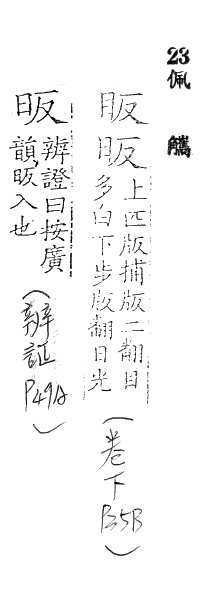 23 佩觿
眅昄
上匹版捕版二翻目
多白下步版翻日光
(卷下 P35B)
昄
辨證曰按廣
韻昄入也
(辨証 P49A)